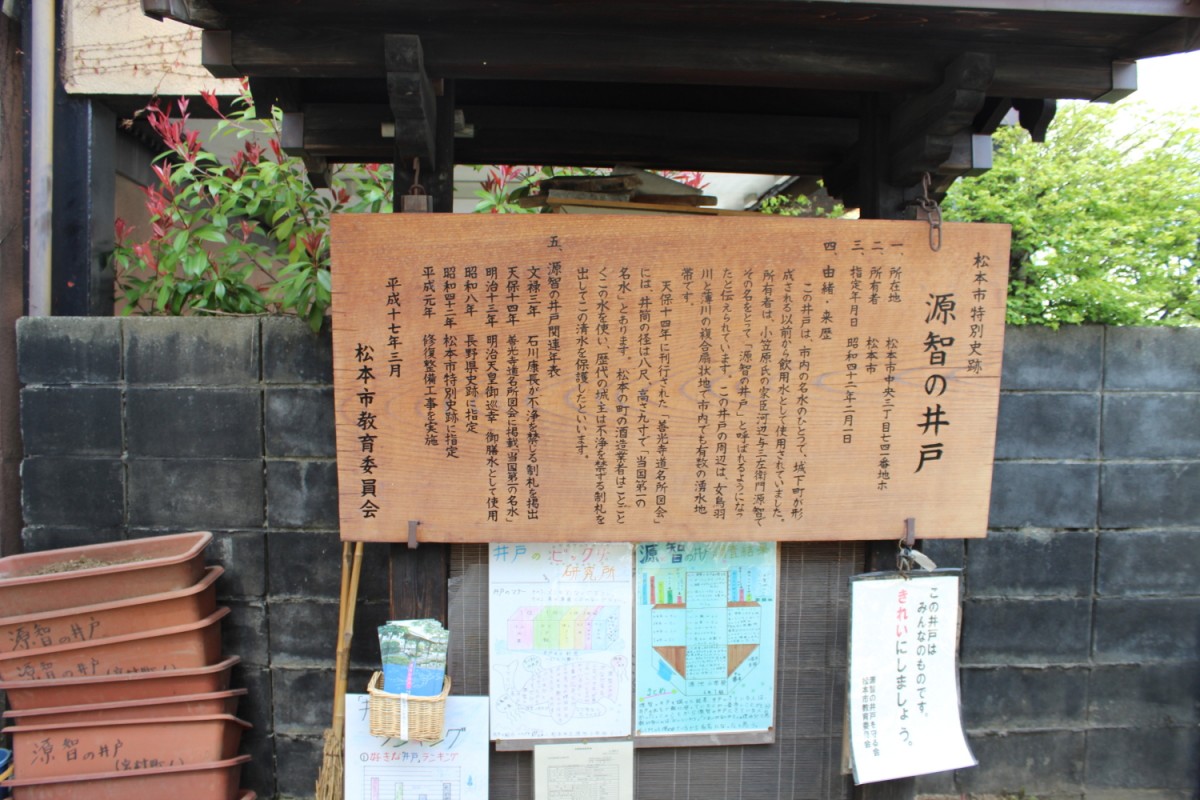 松本市特別史跡
源智の井戸
一、所在地　松本市中央三丁目七四一番地ホ
二、所有者　松本市
三、指定年月日　昭和四十二年二月一日
四、由緒・来歴
この井戸は、市内の名水のひとつで、城下町が形
成される以前から飲用水として使用されていました。
所有者は、小笠原氏の家臣河辺与三左衛門源智で
その名をとって「源智の井戸」と呼ばれるようになっ
たと伝えられています。この井戸の周辺は、女鳥羽
川と薄川の複合扇状地で市内でも有数の湧水地
帯です。
天保十四年に刊行された「善光寺道名所図会」
には、井筒の径は八尺、高さ九寸で「当国第一の
名水」とあります。松本の町の酒造業者はことごと
くこの水を使い、歴代の城主は不浄を禁ずる制札を
出してこの清水を保護したといいます。
五、源智の井戸関連年表
文禄三年　石川康長が不浄を禁じる制札を掲出
天保十四年　善光寺道名所図会に掲載「当国第一の名水」
明治十三年　明治天皇御巡幸　御膳水として使用
昭和八年　長野県史跡に指定
昭和四十二年　松本市特別史跡に指定
平成元年　修復整備工事を実施
平成十七年三月
松本市教育委員会
この井戸は
みんなのものです。
きれいにしましょう。
源智の井戸を守る会
松本市教育委員会
井戸の
研究所
源智の井戸
まとめ
ランキング
①好きな井戸ランキング
源智の井戸
源智の井戸
源智の井戸